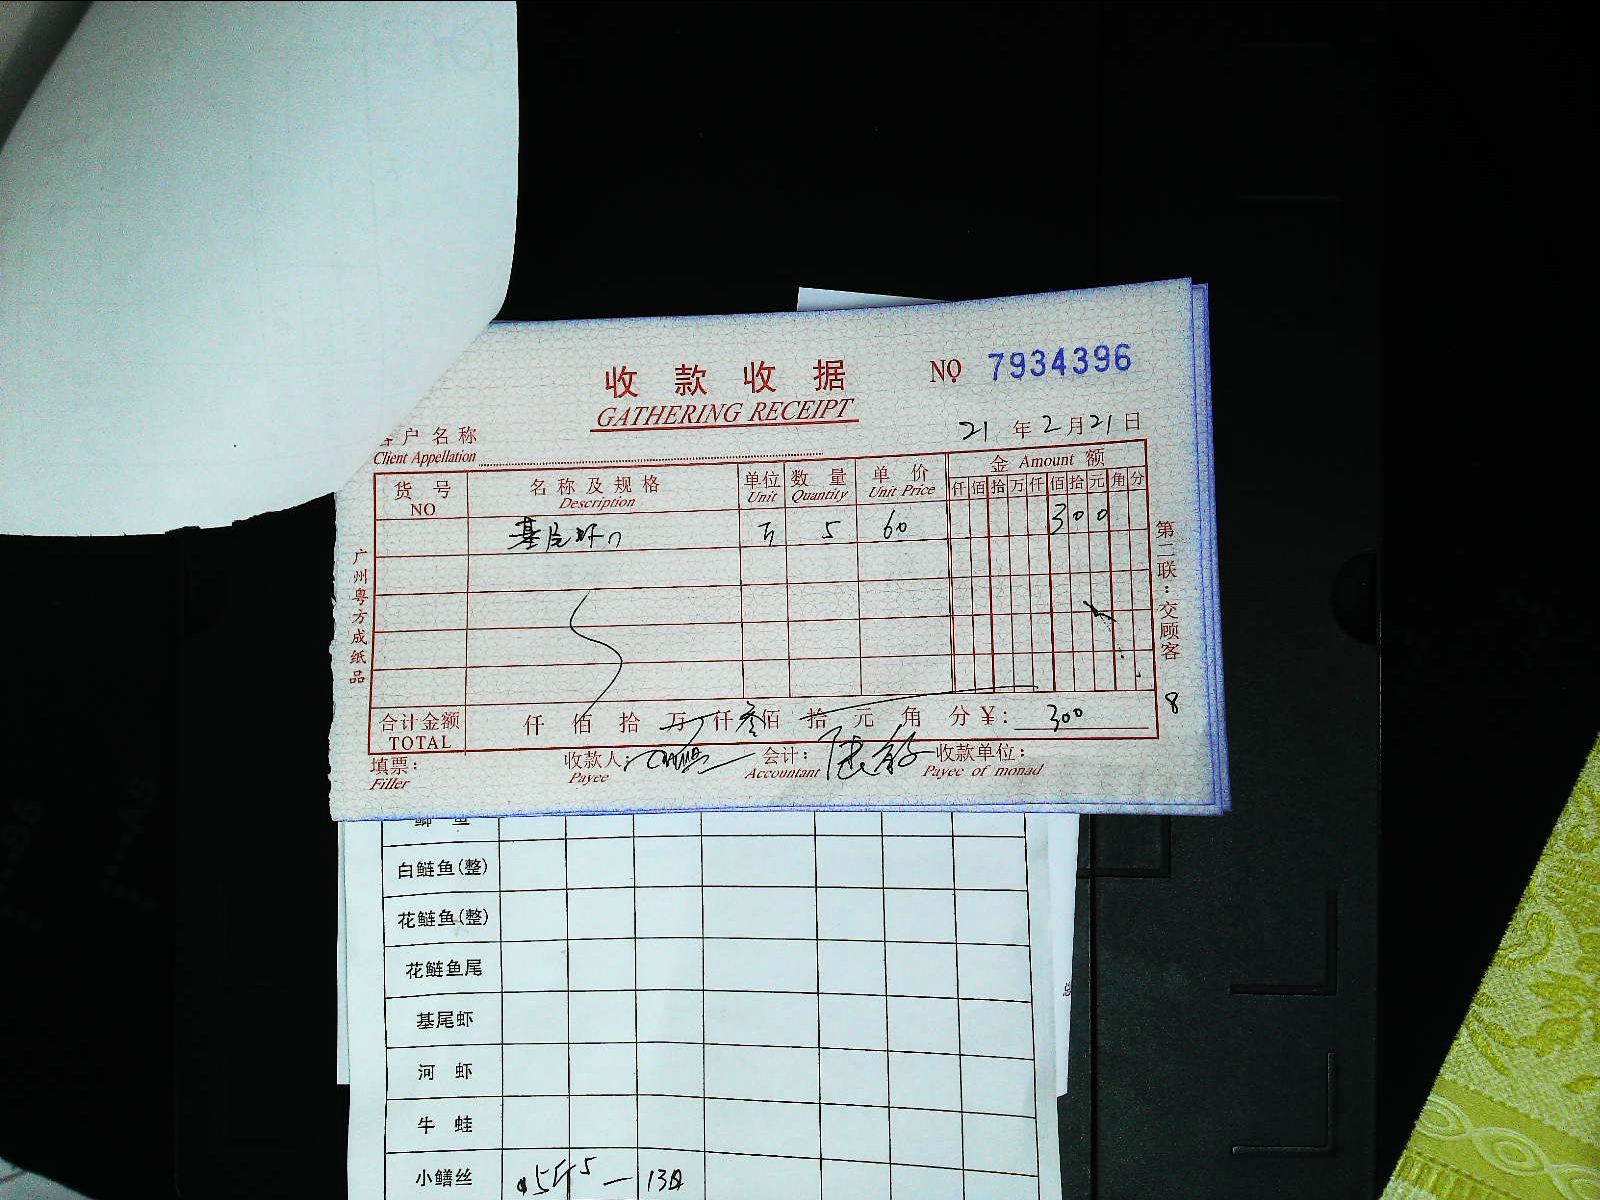 收款收据
GATHERING RECEIPT
NO 7934396
21年2月21日
客户名称
Client Appellation
货号
NO
名称及规格
Description
单位
Unit
数量
Quantity
单价
Unit Price
金 Amount 额
仟佰拾万仟佰拾元角分
基尾虾 5 60 300
合计金额
TOTAL
仟佰拾万仟叁佰拾元角分¥: 300
填票:
Filler
收款人:
Payee
会计:
Accountant
收款单位:
Payee of monad
广州粤方成纸品
第二联:交顾客
8
鲫鱼
白鲢鱼(整)
花鲢鱼(整)
花鲢鱼尾
基尾虾
河虾
牛蛙
小鳝丝